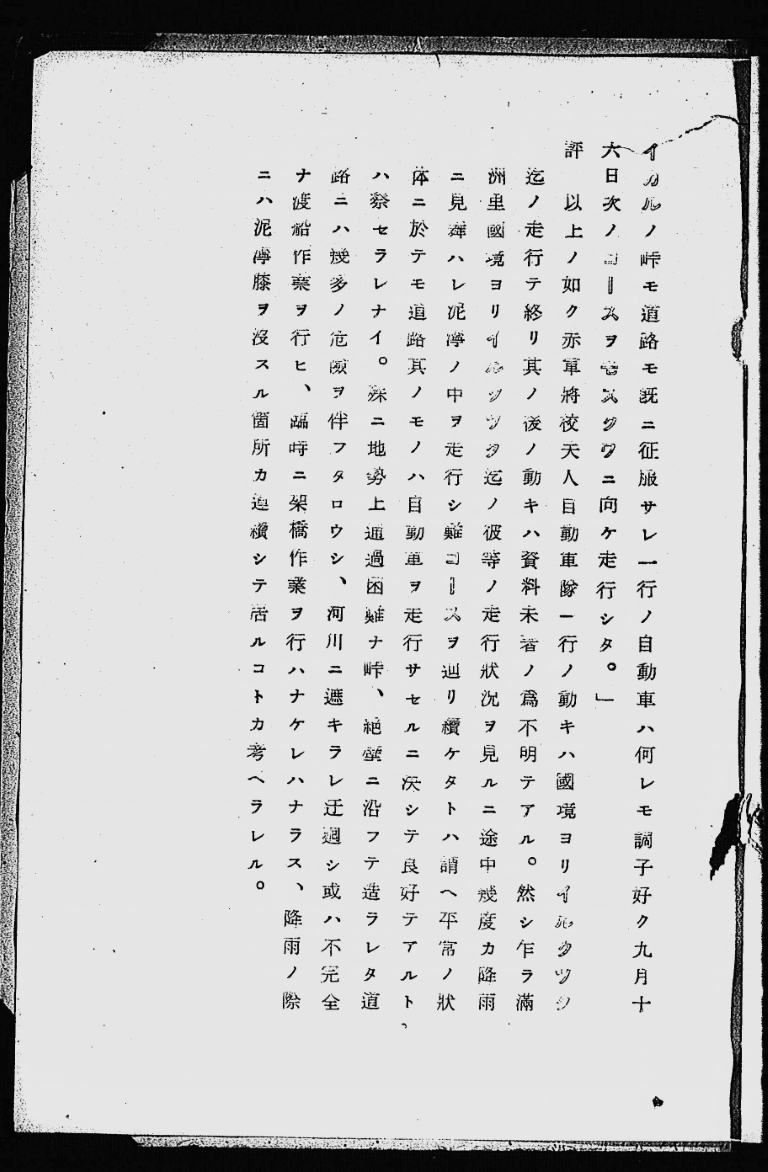 イカルノ峠モ道路モ既ニ征服サレ一行ノ自動車ハ何レモ調子好ク九月十
六日次ノコースヲモスクワニ向ケ走行シタ。」
評　以上ノ如ク赤軍將校夫人自動車隊一行ノ動キハ國境ヨリイルクツク
迄ノ走行テ終リ其ノ後ノ動キハ資料未着ノ爲不明テアル。然シ乍ラ滿
洲里國境ヨリイルクツク迄ノ彼等ノ走行狀況ヲ見ルニ途中幾度カ降雨
ニ見舞ハレ泥濘ノ中ヲ走行シ難コースヲ辿リ續ケタトハ謂ヘ平常ノ狀
体ニ於テモ道路其ノモノハ自動車ヲ走行サセルニ決シテ良好テアルト、
ハ察セラレナイ。殊ニ地勢上通過困難ナ峠、絶壁ニ沿フテ造ラレタ道
路ニハ幾多ノ危險ヲ伴フタロウシ、河川ニ遮キラレ迂廻シ或ハ不完全
ナ渡船作業ヲ行ヒ、臨時ニ架橋作業ヲ行ハナケレハナラス、降雨ノ際
ニハ泥濘膝ヲ沒スル箇所カ連續シテ居ルコトカ考ヘラレル。